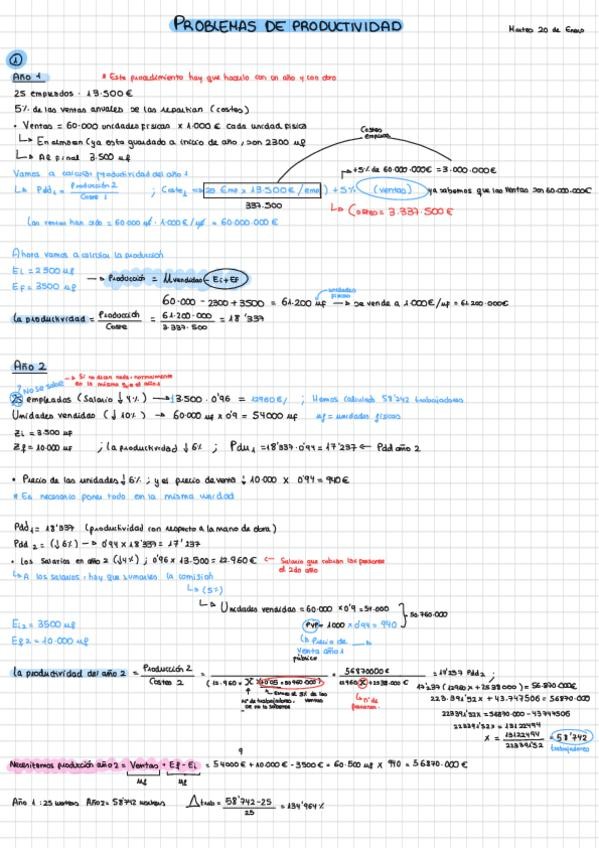 PROBLEMAS DE PRODUCTIVIDAD
Martes 20 de Enero
①
Año 1
* Este procedimiento hay que hacerlo con un año y con otro
25 empleados · 13.500€
5% de las ventas anuales se las repartían (costes)
• Ventas = 60.000 unidades físicas x 1.000€ cada unidad física
↳ En almacen (ya esta guardado a inicio de año, son 2300 uf
↳ Al final 3.500 uf
Costes empresa
Vamos a calcular productividad del año 1
+5% de 60.000.000€ = 3.000.000€
↳ Pdd₁ = Producción 2 / Coste 1 ; Coste₁ = 25 Emp x 13.500€/emp + 5% (ventas) ya sabemos que las ventas son 60.000.000€
337.500
↳ Costes = 3.337.500€
Las ventas han sido = 60.000 uf · 1.000€/uf = 60.000.000€
Ahora vamos a calcular la producción
Ei = 2300 uf
Ef = 3500 uf
→ Producción = Uvendidas - Ei + Ef
unidades físicas
60.000 - 2300 + 3500 = 61.200 uf → se vende a 1.000€/uf = 61.200.000€
la productividad = Producción / Coste = 61.200.000 / 3.337.500 = 18'337
Año 2
→ Si no dicen nada, normalmente es la misma que el año 1
? No se sabe
25 empleados (Salario ↓ 4%) → 13.500 · 0'96 = 12960€/ ; Hemos calculado 58'742 trabajadores
Unidades vendidas (↓ 10%) → 60.000 uf x 0'9 = 54000 uf uf = unidades físicas
Ei = 3.500 uf
Ef = 10.000 uf ; la productividad ↓ 6% ; Pdd₁ = 18'337 · 0'94 = 17'237 ← Pdd año 2
• Precio de las unidades ↓ 6% ; y el precio de venta ↓ 10.000 x 0'94 = 940€
* Es necesario poner todo en la misma unidad
Pdd₁ = 18'337 (productividad con respecto a la mano de obra)
Pdd₂ = (↓ 6%) → 0'94 x 18'337 = 17'237
• Los salarios en año 2 (↓ 4%) ; 0'96 x 13.500 = 12.960€ ← Salario que cobran las personas el 2do año
↳ A los salarios, hay que sumarles la comisión
↳ (5%)
↳ Unidades vendidas = 60.000 x 0'9 = 54.000
50.760.000
PVP = 1000 x 0'94 = 940
Ei₂ = 3500 uf
Ef₂ = 10.000 uf
↳ Precio de venta año 1
público
la productividad del año 2 = Producción 2 / Costes 2 = / (12.960 · X + (0'05 x 50.760.000)) = 56870000€ / 12960 X + 2538000€ = 17'237 Pdd₂ ;
nº de trabajadores, que no lo sabemos
nº de personas
17'237 (12960x + 2538000) = 56.870.000€
223.391'52x + 43.747506 = 56870.000
223391'52x = 56870.000 - 43747506
223391'52x = 13122494
x = 13122494 / 223391'52 = 58'742 trabajadores
Necesitamos producción año 2 = Ventas + Ef - Ei = 54000€ + 10.000€ - 3500€ = 60.500 uf x 940 = 56870.000€
uf uf
Año 1: 25 workers Año 2 = 58'742 workers Δtrab = 58'742-25 / 25 = 134'964%